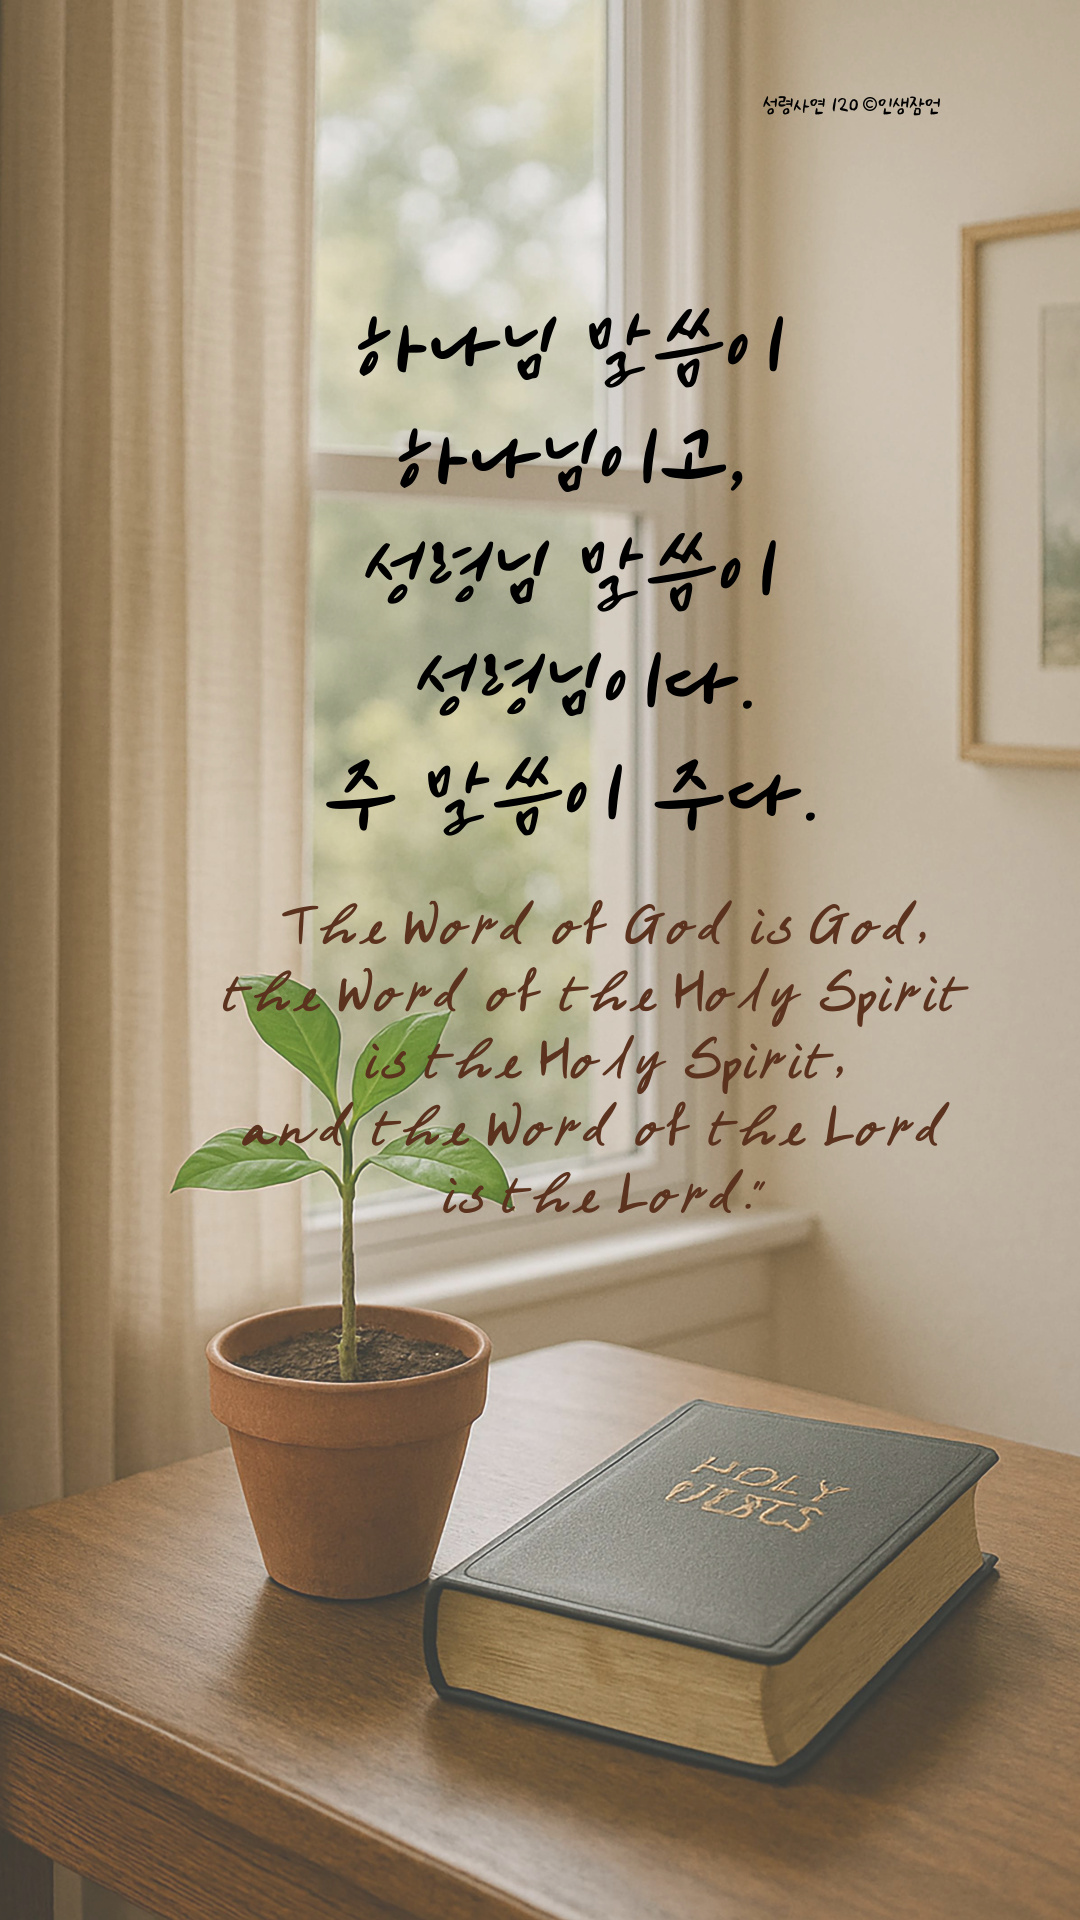 성령사연 120 ©인생잠언
하나님 말씀이
하나님이고,
성령님 말씀이
성령님이다.
주 말씀이 주다.
The Word of God is God,
the Word of the Holy Spirit
is the Holy Spirit,
and the Word of the Lord
is the Lord."
HOLY